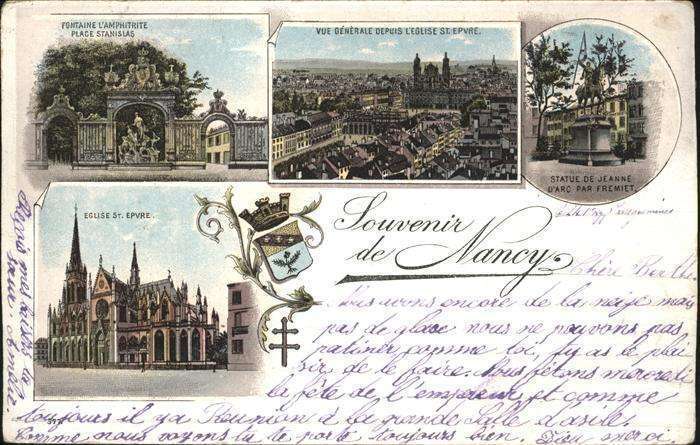 FONTAINE L'AMPHITRITE
PLACE STANISLAS
VUE GÉNÉRALE DEPUIS L'EGLISE ST. EPVRE.
STATUE DE JEANNE
D'ARC PAR FREMIET.
EGLISE ST. EPVRE.
Souvenir
de Nancy
Chère Berthe
Nous avons encore de la neige mais
pas de glace nous ne pouvons pas
patiner comme toi, tu as le plai
sir de le faire. Nous fêtons mercredi
la fête de l'empereur et comme
toujours il y a Réunion à la grande Salle d'asile.
Comme nous voyons tu te porte toujours bien. Dieu merci
Reçois mes baisers ta